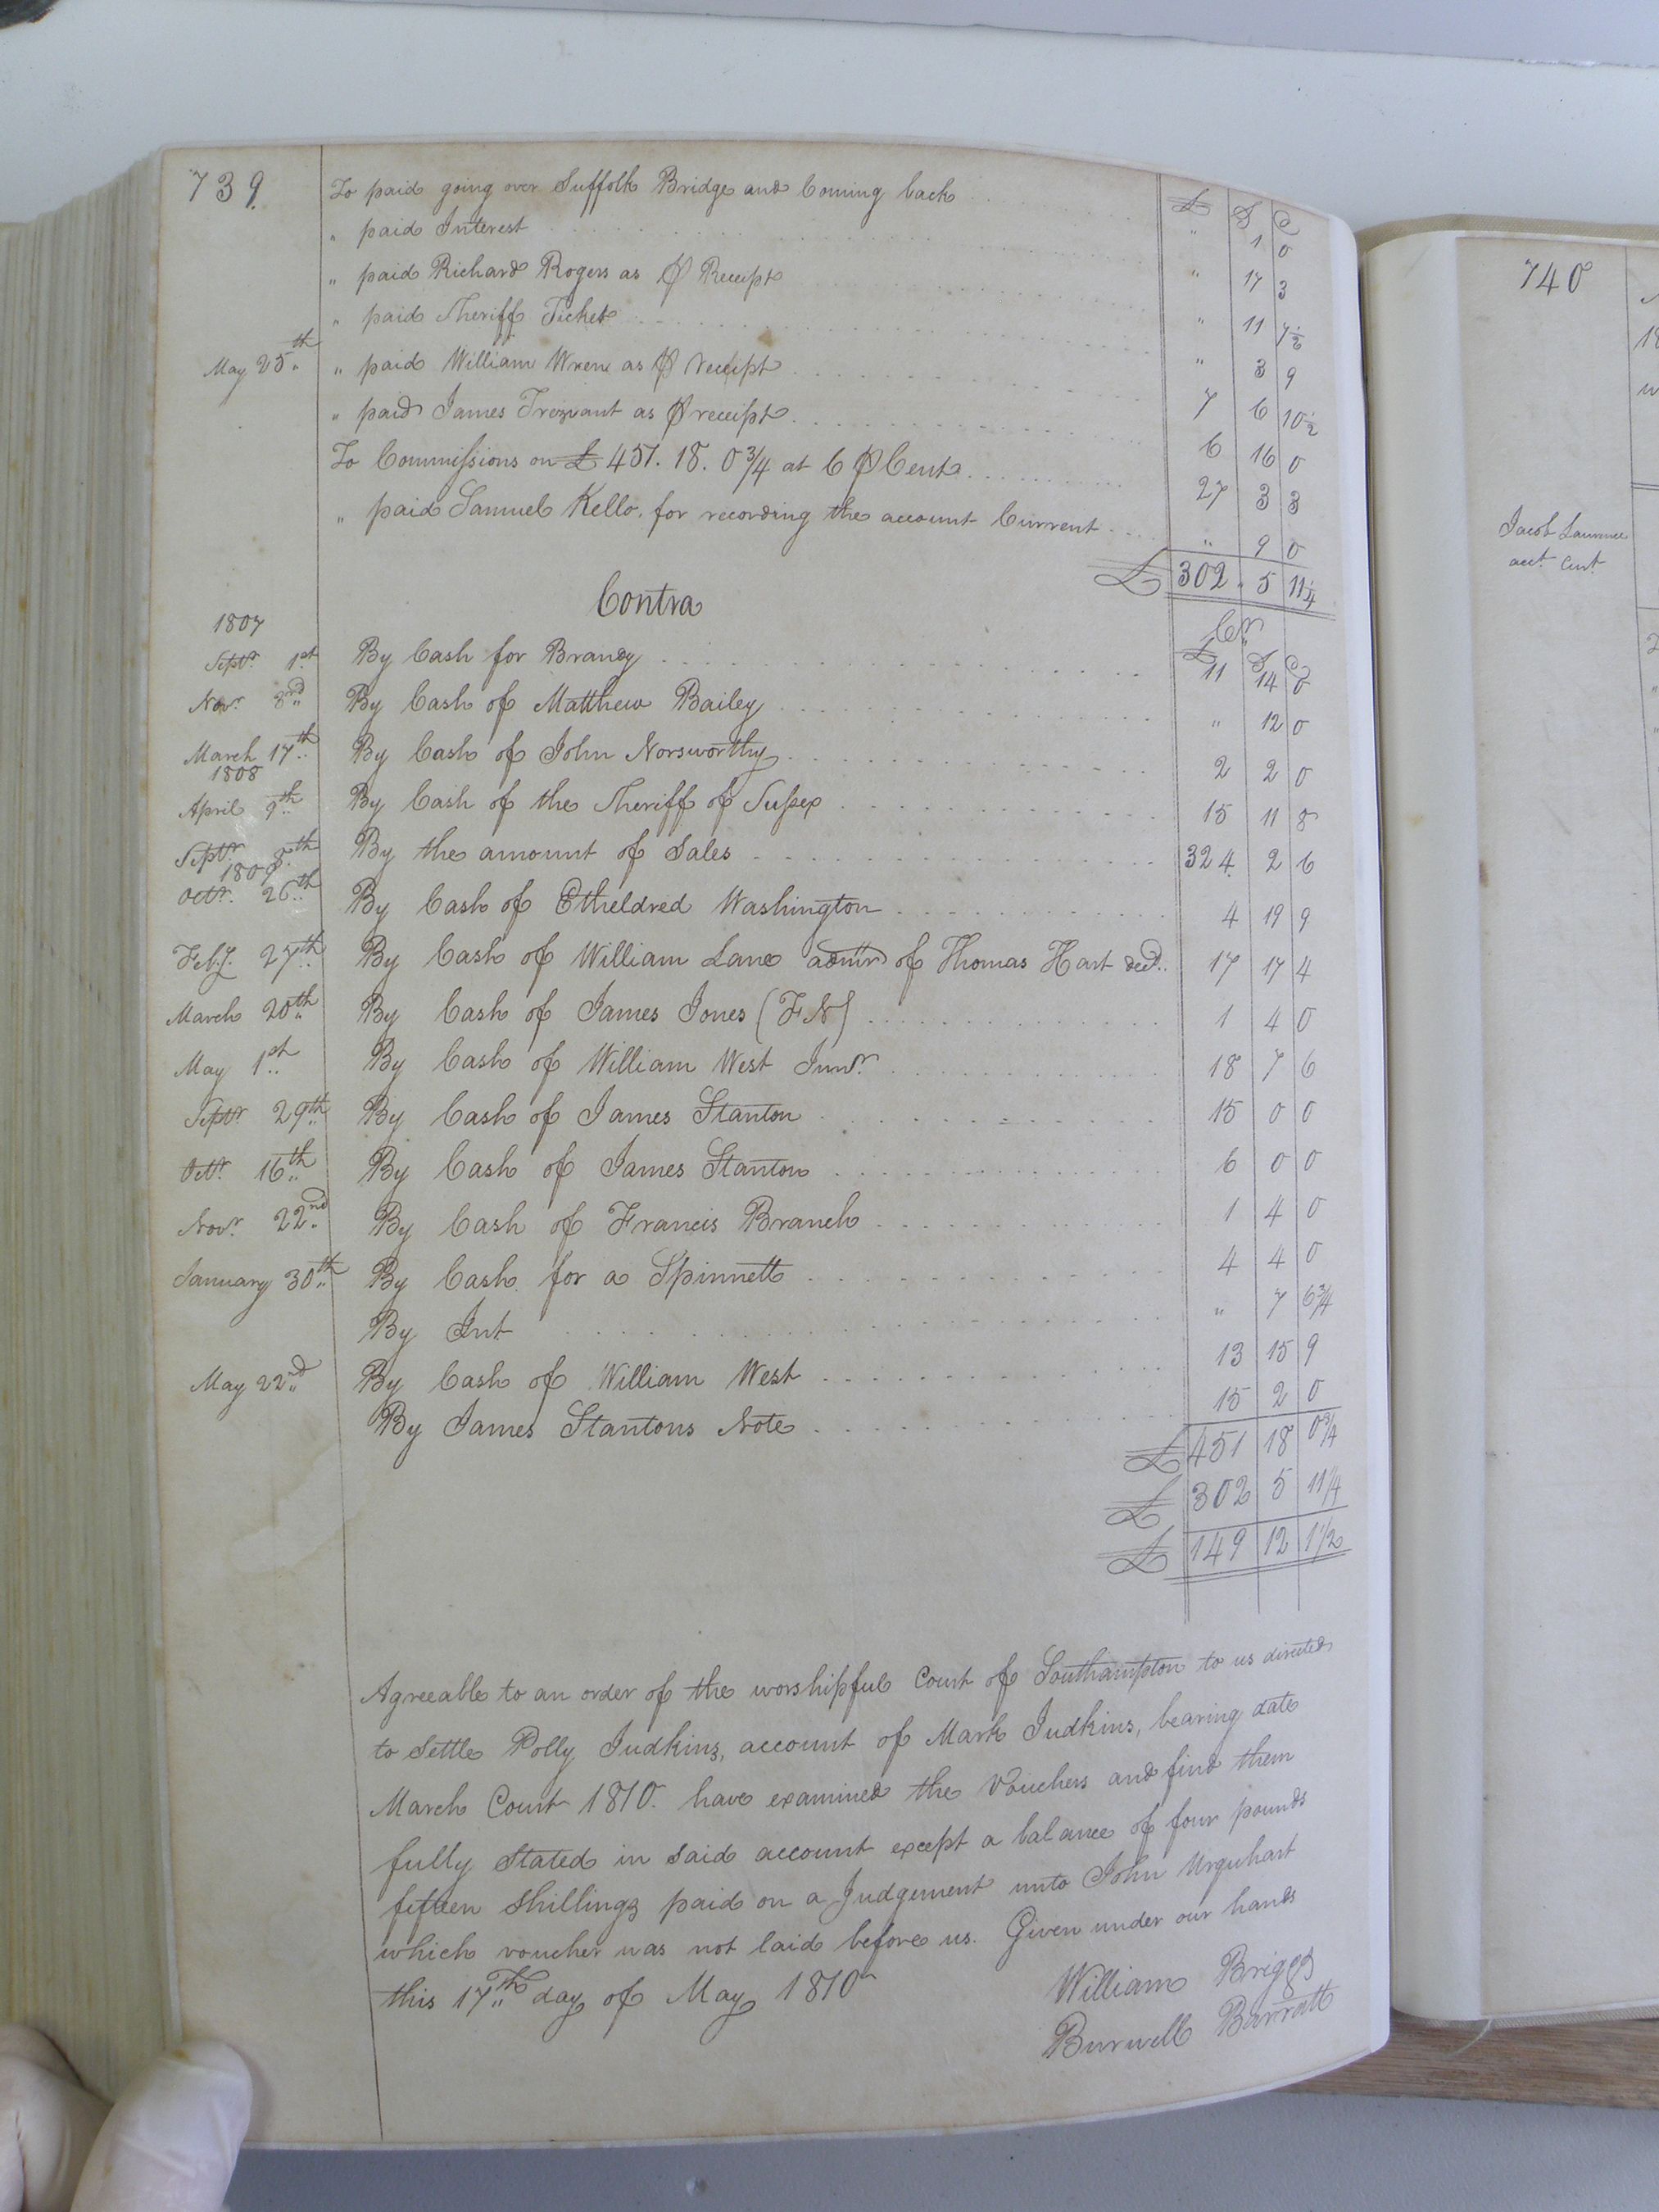 739. To paid going over Suffolk Bridge and Coming back £ S D
" 1 0
" paid Interest " 17 3
" paid Richard Rogers as ⅌ Receipt " 11 7½
" paid Sheriff Tickets " 3 9
May 25th " paid William Wren as ⅌ receipt 7 6 10½
" paid James Trezvant as ⅌ receipt 6 16 0
To Commissions on £ 451. 18. 0¾ at 6 ⅌ Cent 27 3 3
" paid Samuel Kello, for recording the account Current " 9 0
£ 302 " 5 11¼
Contra Cr
1807 £ S D
Septr 1st By Cash for Brandy 11 14 0
Novr 3rd By Cash of Matthew Bailey " 12 0
March 17th By Cash of John Norsworthy 2 2 0
1808
April 9th By Cash of the Sheriff of Sussex 15 11 8
Septr 8th By the amount of Sales 324 2 6
1809
Octr. 26th By Cash of Etheldred Washington 4 19 9
Feby. 27th By Cash of William Lane admr of Thomas Hart decd. 17 17 4
March 20th By Cash of James Jones (FN) 1 4 0
May 1st By Cash of William West Junr. 18 7 6
Septr 29th By Cash of James Stanton 15 0 0
Octr. 16th By Cash of James Stanton 6 0 0
Novr. 22nd By Cash of Francis Branch 1 4 0
January 30th By Cash for a Spinnett 4 4 0
By Int " 7 6¾
May 22nd By Cash of William West 13 15 9
By James Stantons Note 15 2 0
£ 451 18 0¾
£ 302 5 11¼
£ 149 12 1½
Agreeable to an order of the worshipful Court of Southampton to us directed
to settle Polly Judkins, account of Mark Judkins, bearing date
March Court 1810. have examined the Vouchers and find them
fully Stated in said account except a balance of four pounds
fifteen shillings paid on a Judgement unto John Urquhart
which voucher was not laid before us. Given under our hands
this 17th day of May 1810
William Briggs
Burwell Barratt
740
Jacob Laurence
acct. Curt.